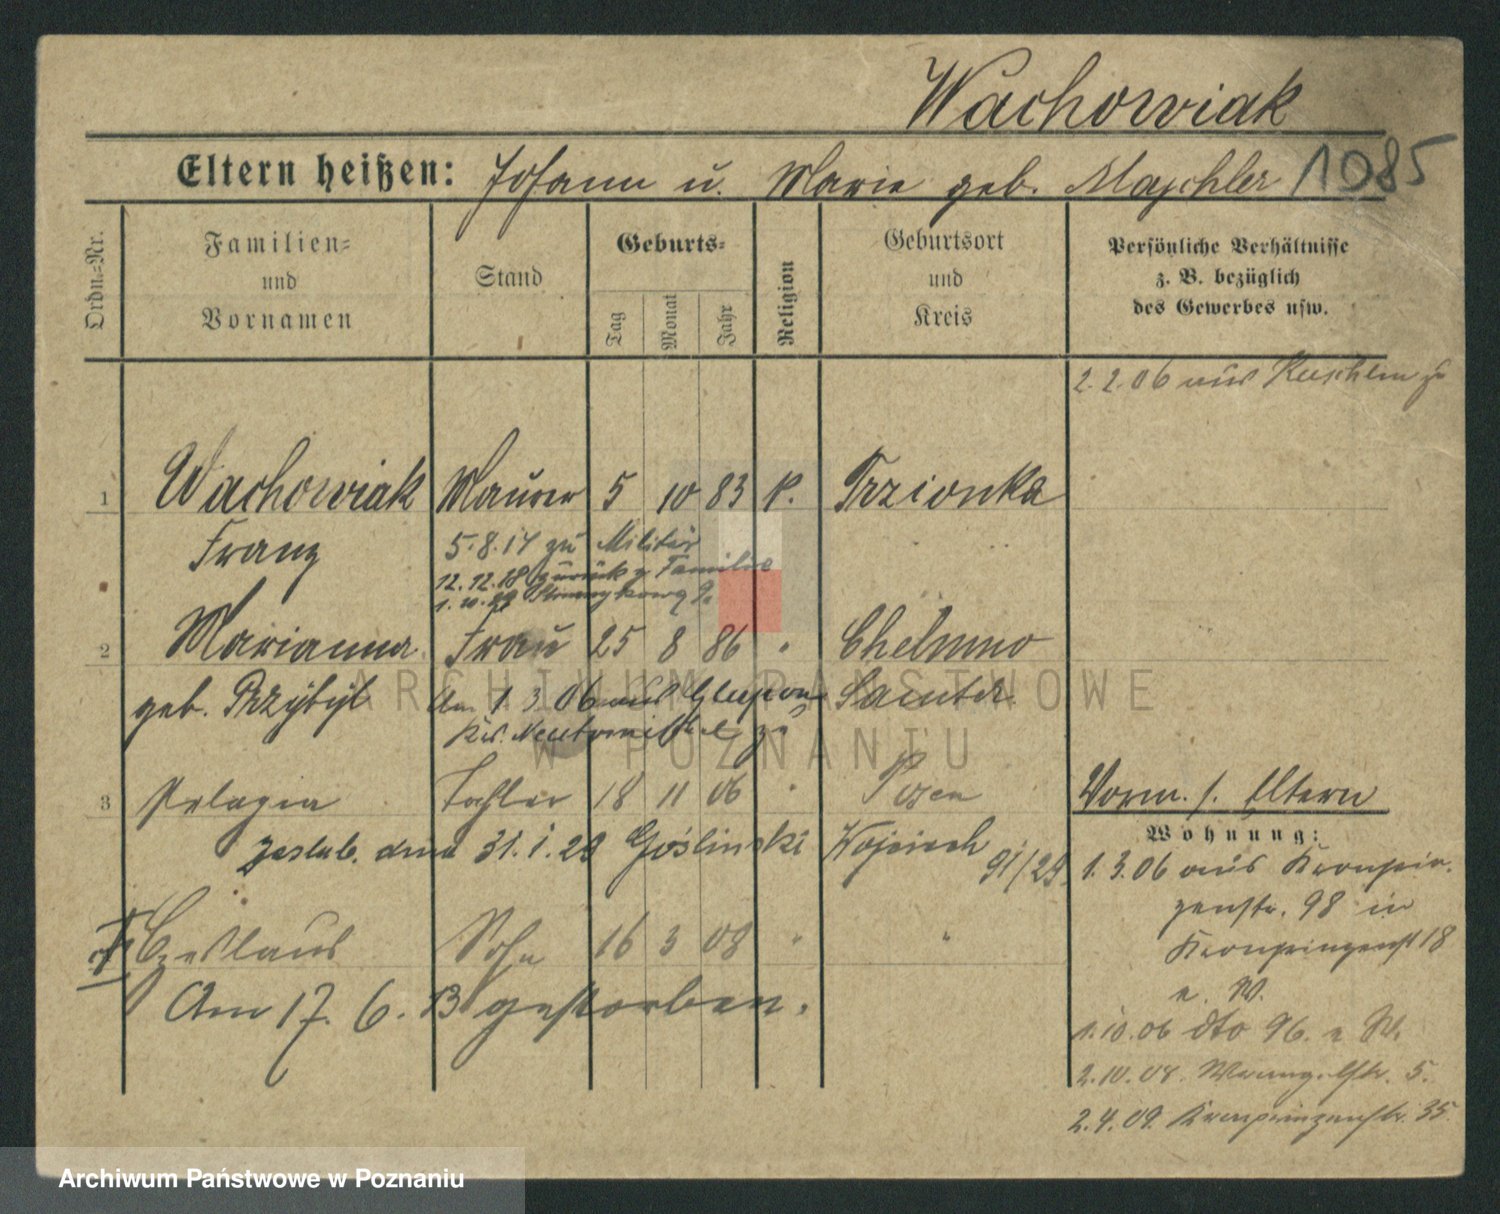 Wachowiak
Eltern heißen: Johann u. Marie geb. Maschler 1085
Ordn.-Nr.
Familien-
und
Vornamen
Stand
Geburts-
Tag
Monat
Jahr
Religion
Geburtsort
und
Kreis
Persönliche Verhältnisse
z. B. bezüglich
des Gewerbes usw.
2.2.06 aus Kuschlin zu
1 Wachowiak Maurer 5 10 83 k. Trzionka
Franz 5.8.17 zu Militär
12.12.18 zurück z Familie
2 Marianna Frau 25 8 86 " Chelmno
geb. Przybyl Am 1.3.06 aus Glupon Samter
Krs. Neutomischel zu
3 Pelagia Tochter 18 11 06 " Posen
zaślub. dnia 31.1.29 Gośliński Wojciech
91/29.
Czeslaus Sohn 16 3 08 " "
Am 17.6.13 gestorben.
Vorm. s. Eltern
Wohnung:
1.3.06 aus Kronprin-
zenstr. 98 in
Kronprinzenst 18
a. W.
1.10.06 dto 96. a W.
2.10.08. 5.
2.4.09. Kronprinzenstr. 35.
ARCHIWUM PAŃSTWOWE
W POZNANIU
Archiwum Państwowe w Poznaniu